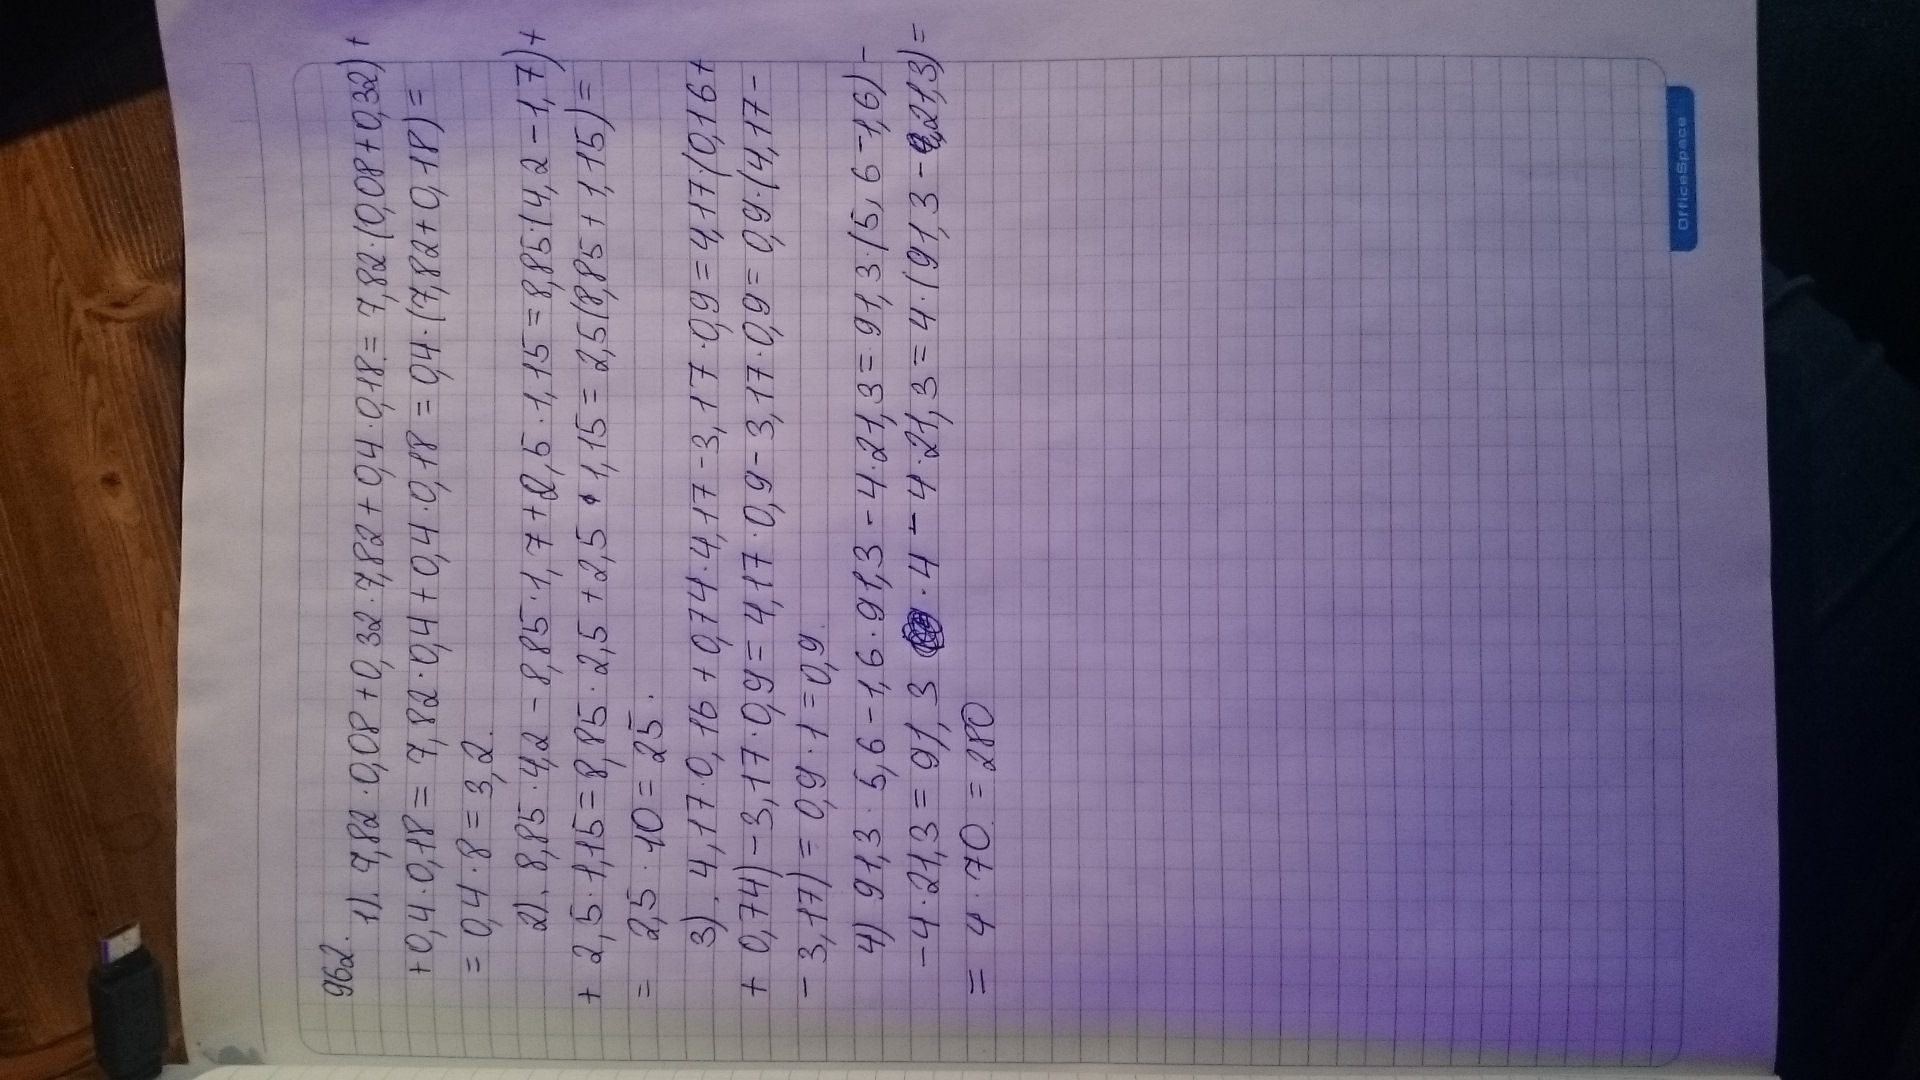 962.
1). 7,82 · 0,08 + 0,32 · 7,82 + 0,4 · 0,18 = 7,82 · (0,08 + 0,32) +
+ 0,4 · 0,18 = 7,82 · 0,4 + 0,4 · 0,18 = 0,4 · (7,82 + 0,18) =
= 0,4 · 8 = 3,2.
2). 8,85 · 4,2 - 8,85 · 1,7 + 2,5 · 1,15 = 8,85 · (4,2 - 1,7) +
+ 2,5 · 1,15 = 8,85 · 2,5 + 2,5 · 1,15 = 2,5 (8,85 + 1,15) =
= 2,5 · 10 = 25.
3). 4,17 · 0,16 + 0,74 · 4,17 - 3,17 · 0,9 = 4,17 · (0,16 +
+ 0,74) - 3,17 · 0,9 = 4,17 · 0,9 - 3,17 · 0,9 = 0,9 · (4,17 -
- 3,17) = 0,9 · 1 = 0,9.
4) 91,3 · 5,6 - 1,6 · 91,3 - 4 · 21,3 = 91,3 · (5,6 - 1,6) -
- 4 · 21,3 = 91,3 · 4 - 4 · 21,3 = 4 · (91,3 - 21,3) =
= 4 · 70 = 280
OfficeSpace